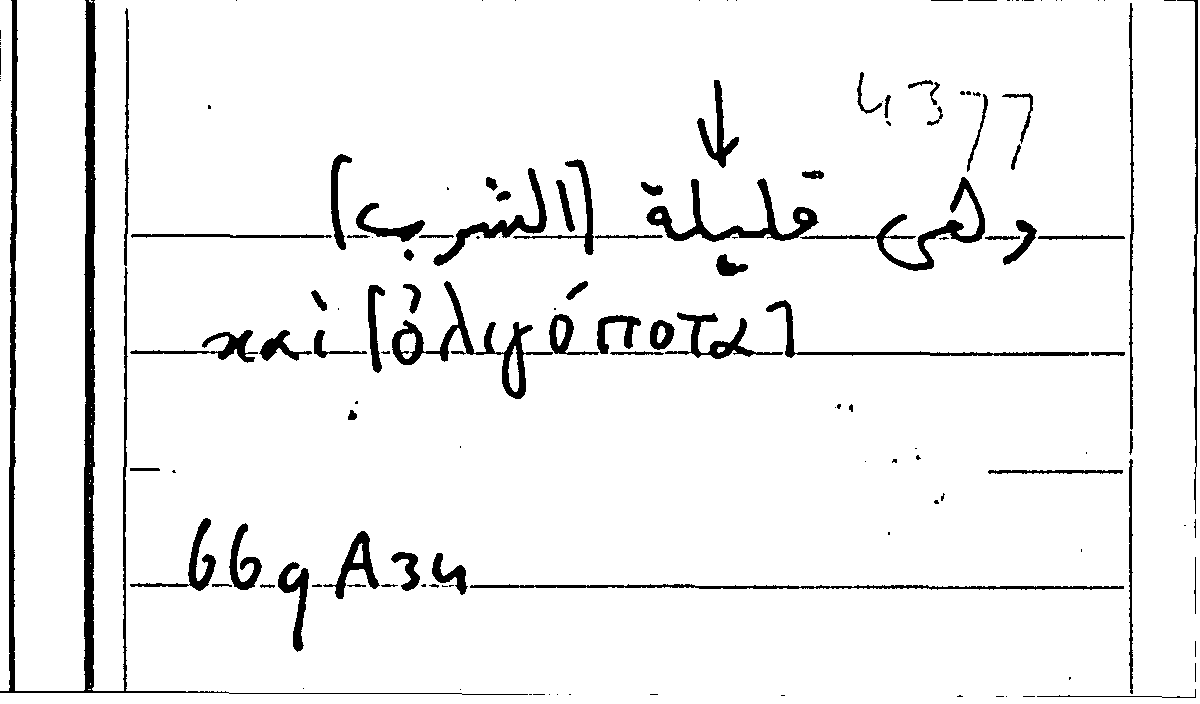 4377
↓
وهى قليلة [الشرب]
καὶ [ὀλιγόποτα]
669 A34